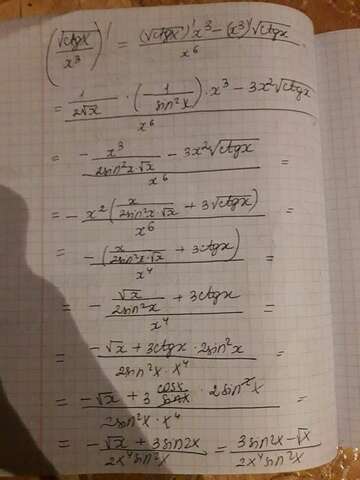 (√ctgx / x³)' = ((√ctgx)' x³ - (x³)' √ctgx) / x⁶ =
= (1 / 2√x · (1 / sin²x) · x³ - 3x² √ctgx) / x⁶ =
= (- x³ / (2sin²x·√x) - 3x² √ctgx) / x⁶ =
= - x² (x / (2sin²x·√x) + 3√ctgx) / x⁶ =
= - (x / (2sin²x·√x) + 3ctgx) / x⁴ =
= - (√x / 2sin²x + 3ctgx) / x⁴ =
= (-√x + 3ctgx · 2sin²x) / (2sin²x · x⁴) =
= (-√x + 3 cosx / sinx · 2sin²x) / (2sin²x · x⁴) =
= (-√x + 3sin2x) / (2x⁴sin²x) = (3sin2x - √x) / (2x⁴sin²x)